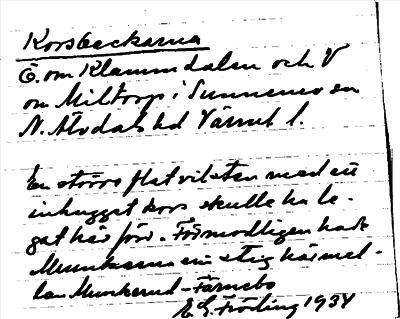 Korsbackarna
Ö. om Klammdalen och V
om Miltorp i Sunnemo sn
N. Älvdals hd Värml l.
En större flat vilsten med ett
inhugget kors skulle ha le-
gat här förr. Förmodligen hade
Munkarna en stig här mel-
lan Munkerud - Färnebo
E. G. Fröding 1934